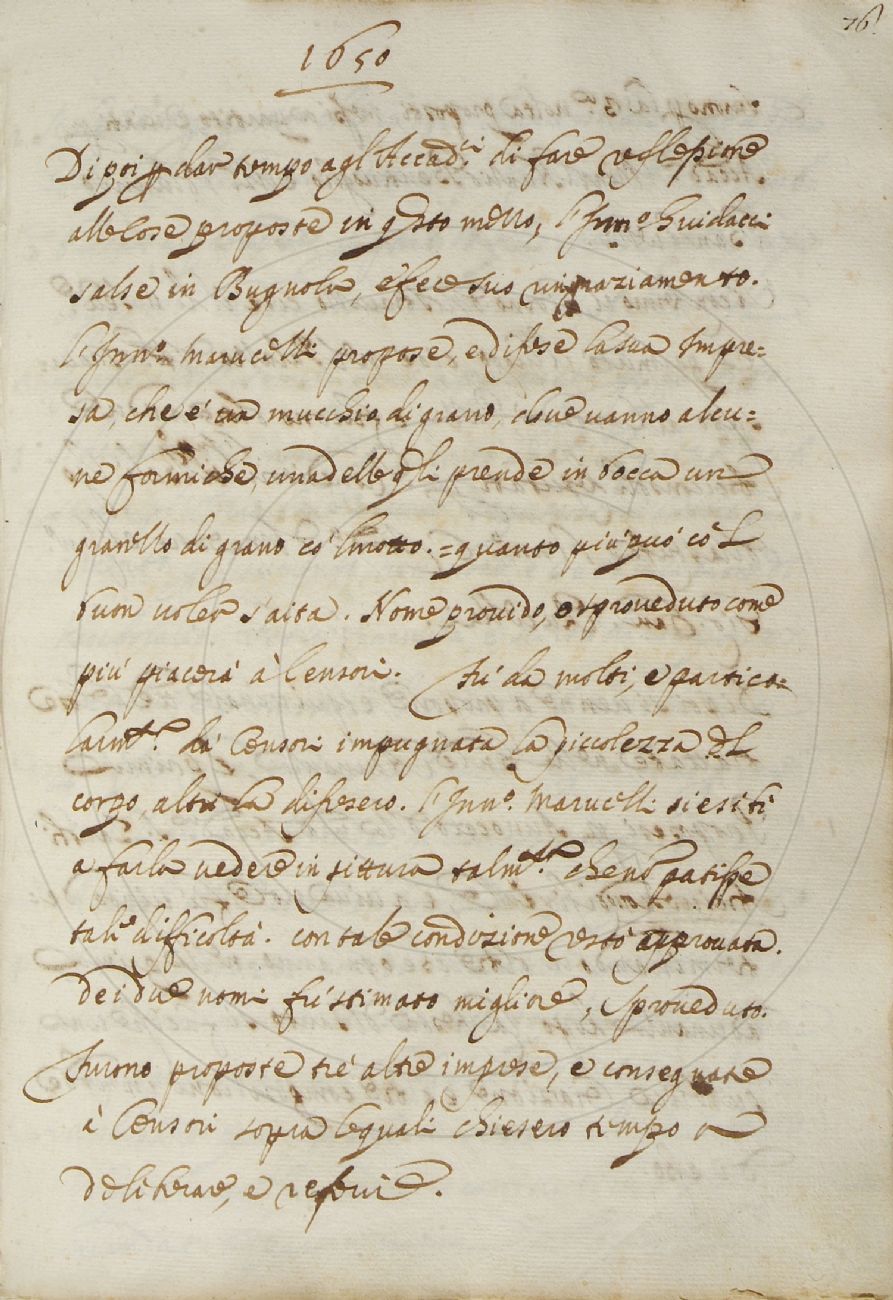 76
1650
Di poi p dar tempo agl'Accad.ci di fare reflessione
alle cose proposte in qsto mezzo, l'Inn.o Guidacci
salse in Bugnola, e fece suo ringraziamento.
L'Inn.o Marucelli propose, e difese la sua Impre=
sa, che è un mucchio di grano, dove vanno alcu=
ne formiche, una delle qli prende in bocca un
granello di grano co' l motto. =quanto più può co'l
buon voler s'aita. Nome provido, o sproveduto come
più piacerà à Censori. Fù da molti, e partico=
larm.te da Censori impugnata la piccolezza del
corpo, altri la difesero. L'Inn.o Marucelli si esibì
a farla vedere in pittura talm.te che nõ patisse
tale difficoltà. con tale condizione restò approvata.
De i due nomi fù stimato migliore, Sproveduto.
Furono proposte trè altre imprese, e consegnate
à Censori sopra le quali chiesero tempo a
deliberare, e referire.